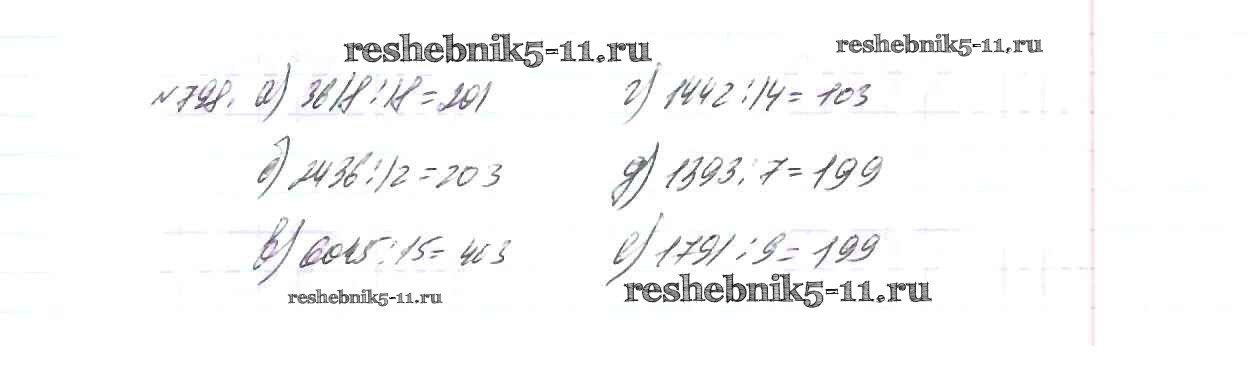 reshebnik5-11.ru reshebnik5-11.ru
№798. а) 3618:18=201 г) 1442:14=103
б) 2436:12=203 д) 1393:7=199
в) 6045:15=403 е) 1791:9=199
reshebnik5-11.ru reshebnik5-11.ru